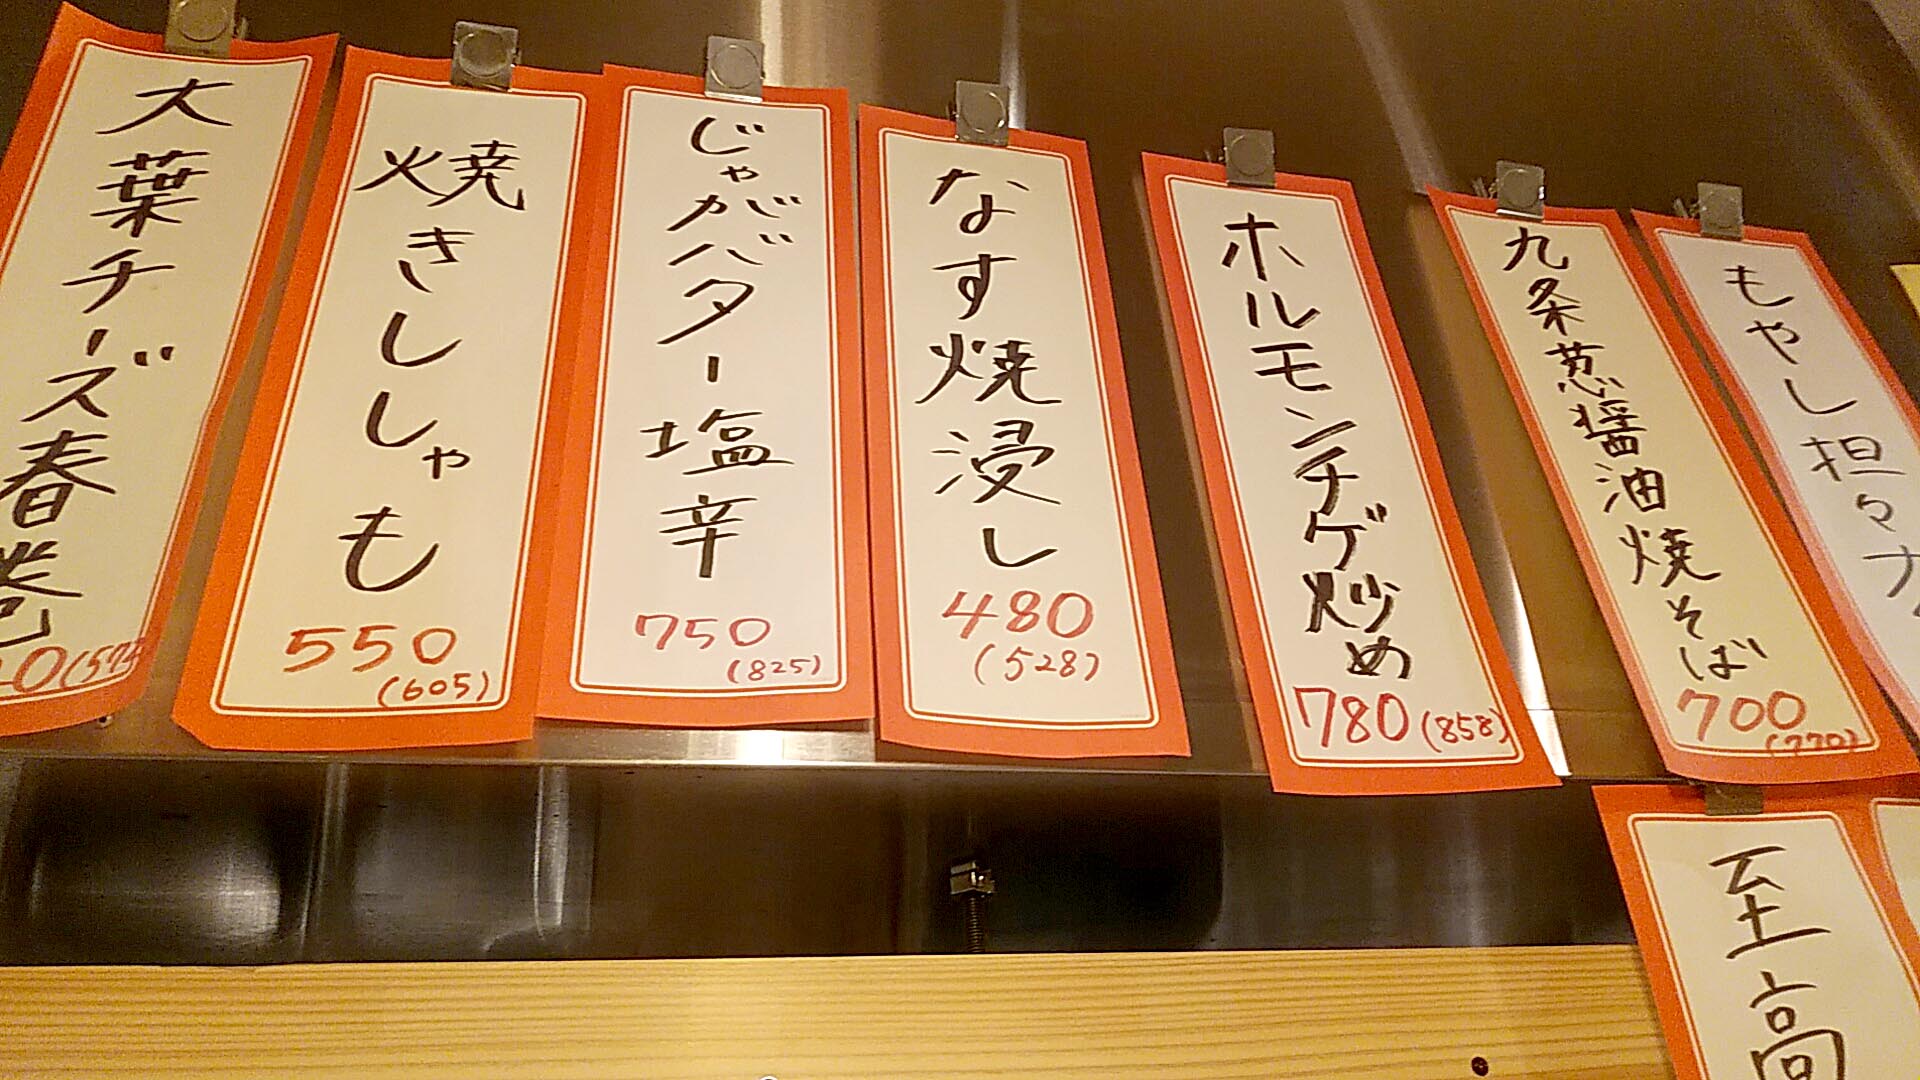 大葉チーズ春巻
焼きししゃも
550
(605)
じゃがバター塩辛
750
(825)
なす焼浸し
480
(528)
ホルモンチゲ炒め
780(858)
九条葱醤油焼そば
700
(770)
もやし担々
至高